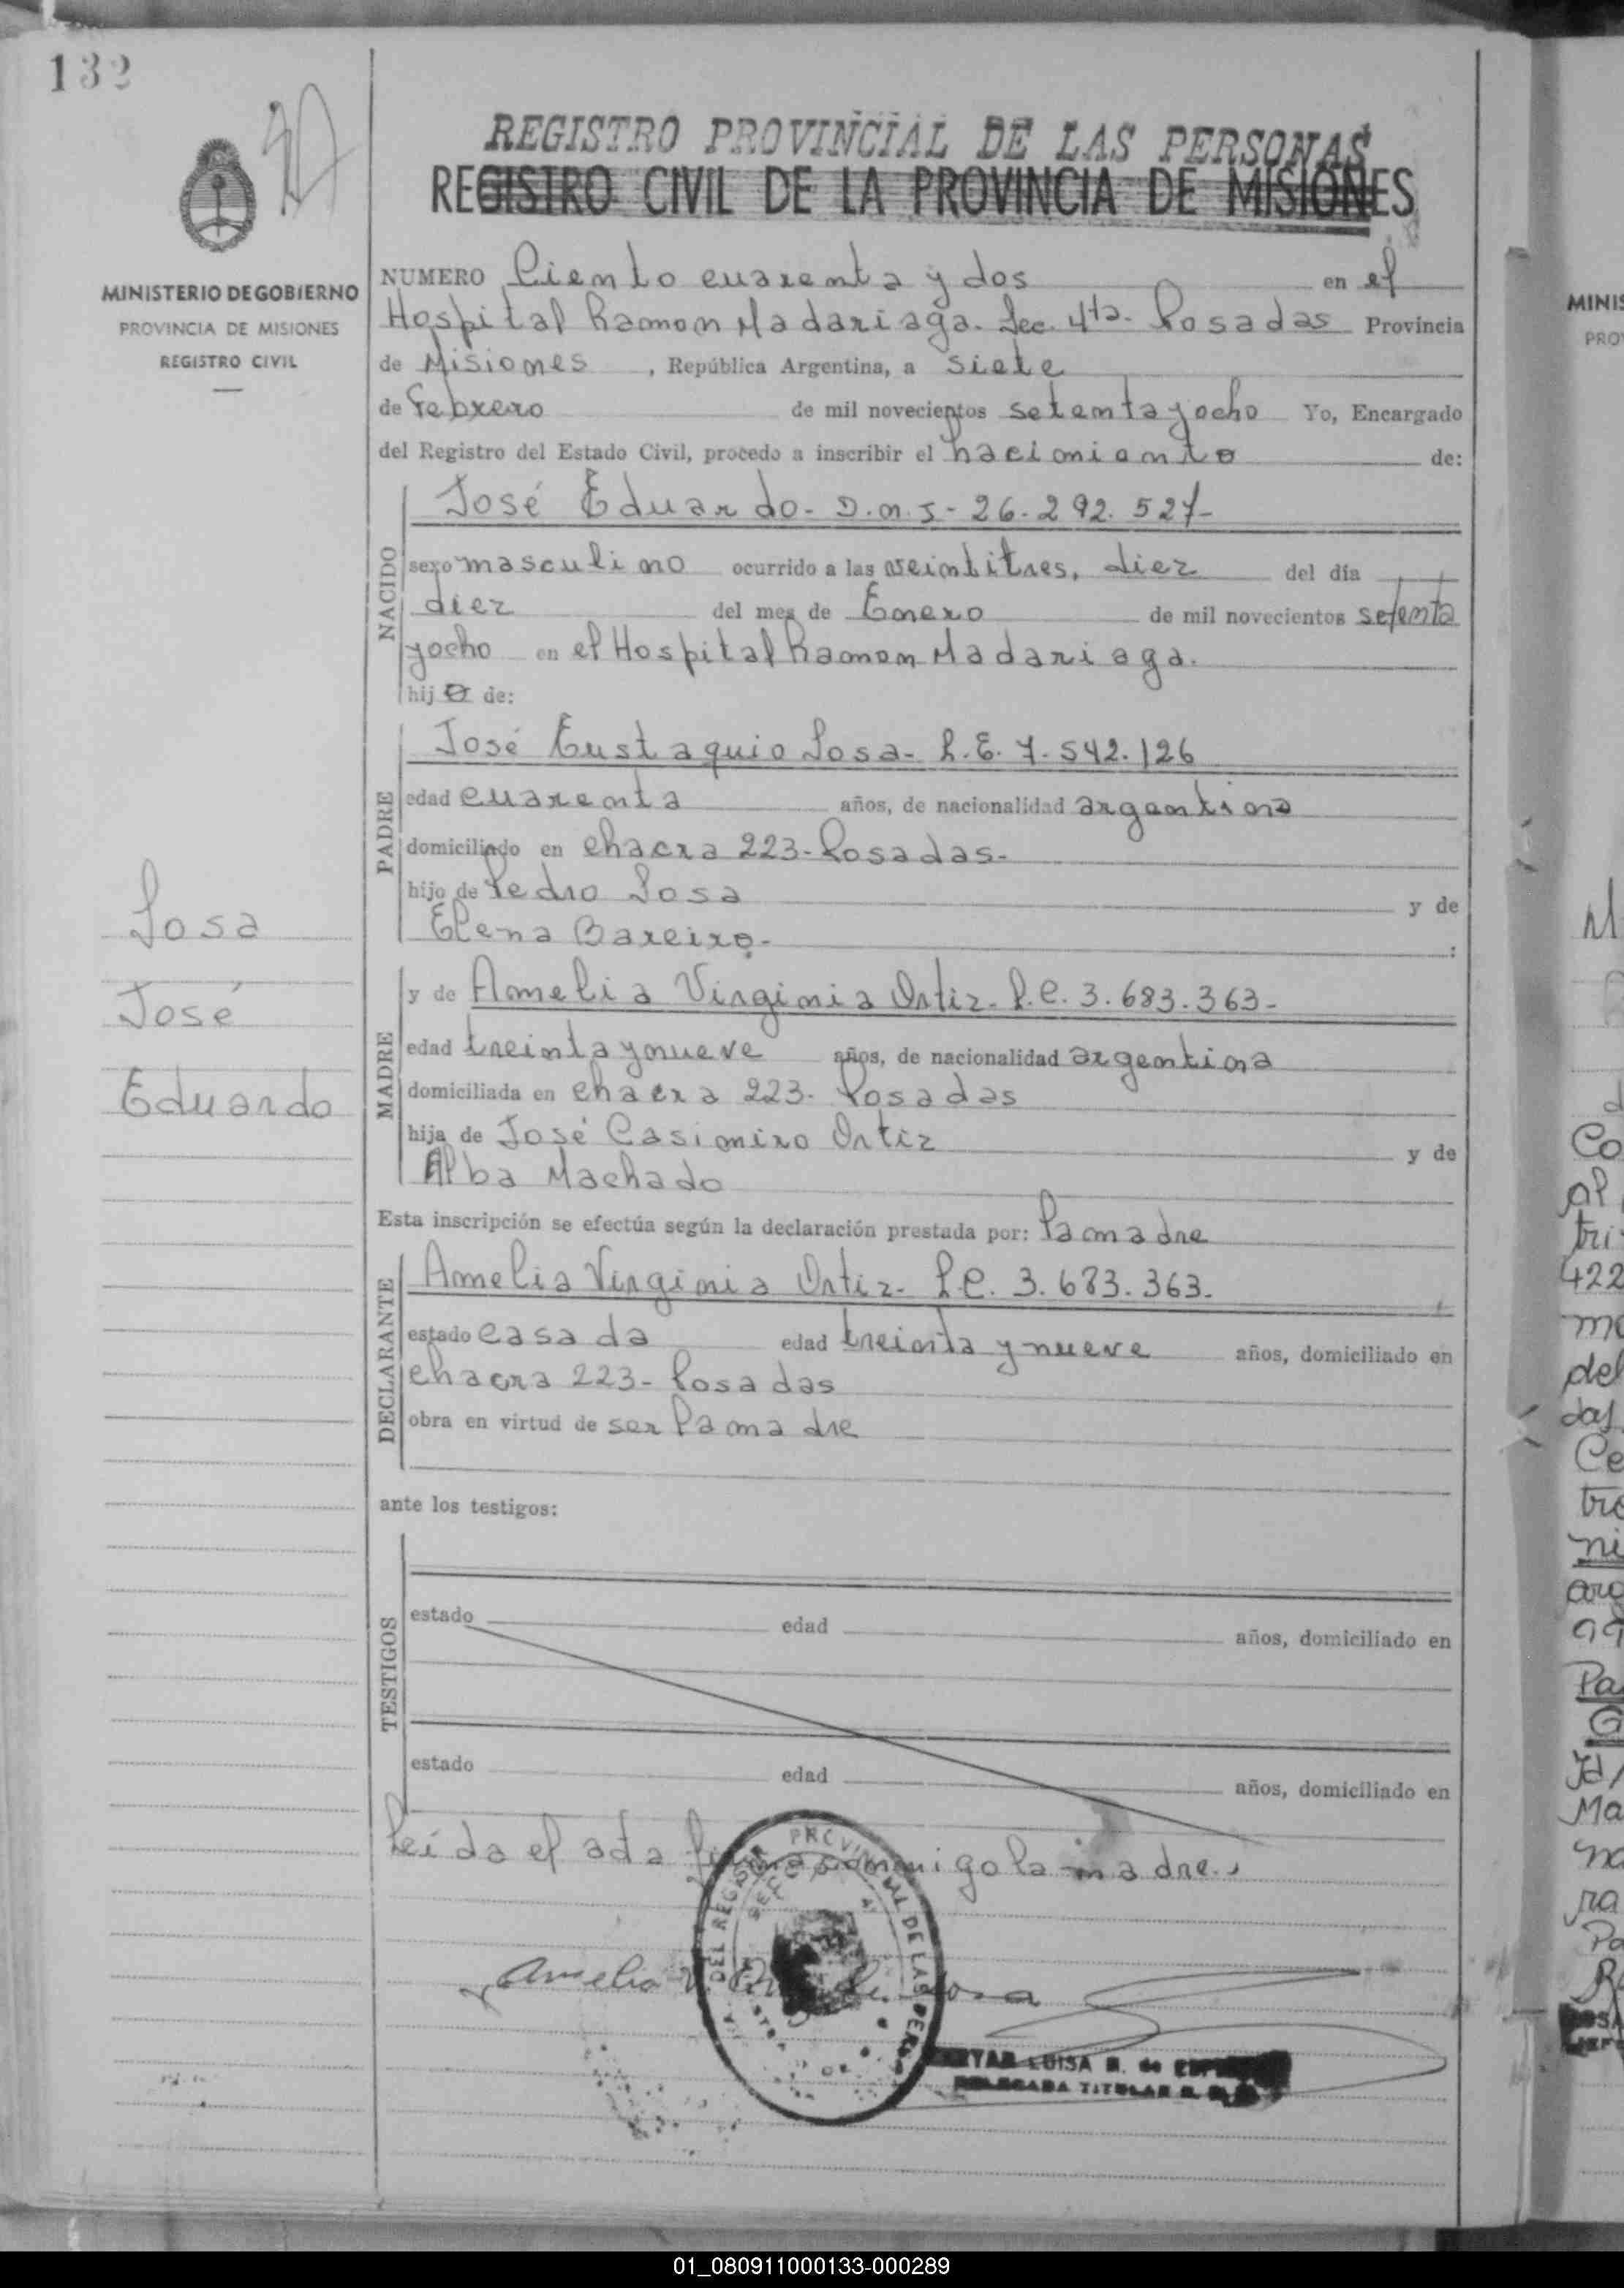 132
MINISTERIO DE GOBIERNO
PROVINCIA DE MISIONES
REGISTRO CIVIL
REGISTRO PROVINCIAL DE LAS PERSONAS
REGISTRO CIVIL DE LA PROVINCIA DE MISIONES
NUMERO Ciento cuarenta y dos en el
Hospital Ramon Madariaga. Sec. 4ta. Posadas Provincia
de Misiones, República Argentina, a siete
de Febrero de mil novecientos setenta y ocho Yo, Encargado
del Registro del Estado Civil, procedo a inscribir el nacimiento de:
NACIDO
José Eduardo- D.N.I- 26.292.527-
sexo masculino ocurrido a las veintitres, diez del día
diez del mes de Enero de mil novecientos setenta
y ocho en el Hospital Ramon Madariaga.
hijo de:
PADRE
José Eustaquio Sosa- L.E. 7.542.126
edad cuarenta años, de nacionalidad argentino
domiciliado en chacra 223-Posadas-
hijo de Pedro Sosa y de
Elena Bareiro- :
Sosa
José
Eduardo
MADRE
y de Amelia Virginia Ortiz- L.C. 3.683.363-
edad treinta y nueve años, de nacionalidad argentina
domiciliada en chacra 223- Posadas
hija de José Casimiro Ortiz y de
Alba Machado
Esta inscripción se efectúa según la declaración prestada por: la madre
DECLARANTE
Amelia Virginia Ortiz- L.C. 3.683.363.
estado casada edad treinta y nueve años, domiciliado en
chacra 223- Posadas
obra en virtud de ser la madre
ante los testigos:
TESTIGOS
estado edad años, domiciliado en
estado edad años, domiciliado en
Leída el acta firma conmigo la madre.
DEL REGISTRO PROVINCIAL DE LAS PERS
Amelia V. de Sosa
LUISA R. de
DELEGADA TITULAR
01_080911000133-000289